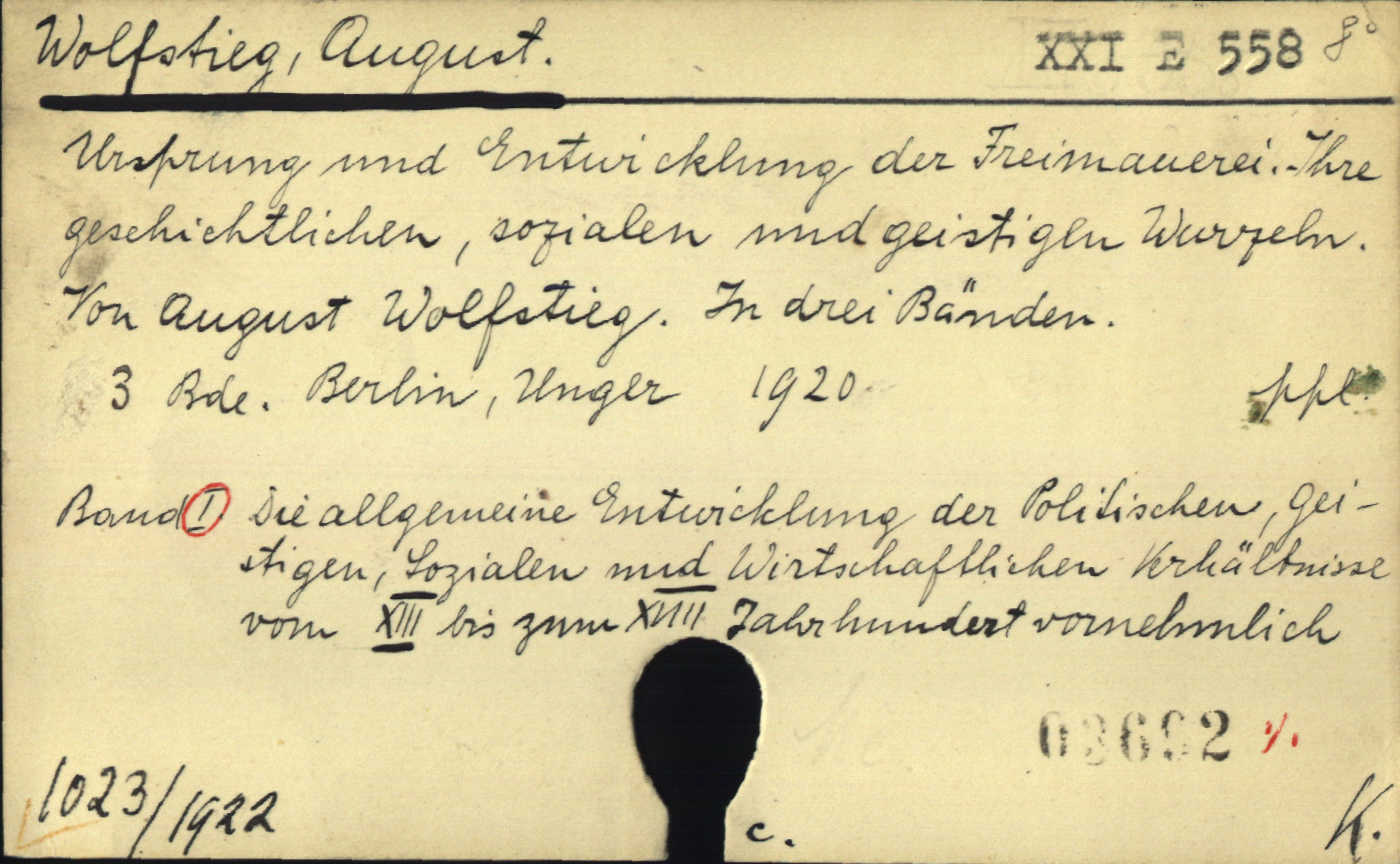 Wolfstieg, August. XXI E 558 8°
Ursprung und Entwicklung der Freimauerei. Ihre
geschichtlichen, sozialen und geistigen Wurzeln.
Von August Wolfstieg. In drei Bänden.
3 Bde. Berlin, Unger 1920 ppl.
Band I Die allgemeine Entwicklung der Politischen, Gei-
stigen, Sozialen und Wirtschaftlichen Verhältnisse
vom XIII bis zum XVIII Jahrhundert vornehmlich
1023/1922
c. K.